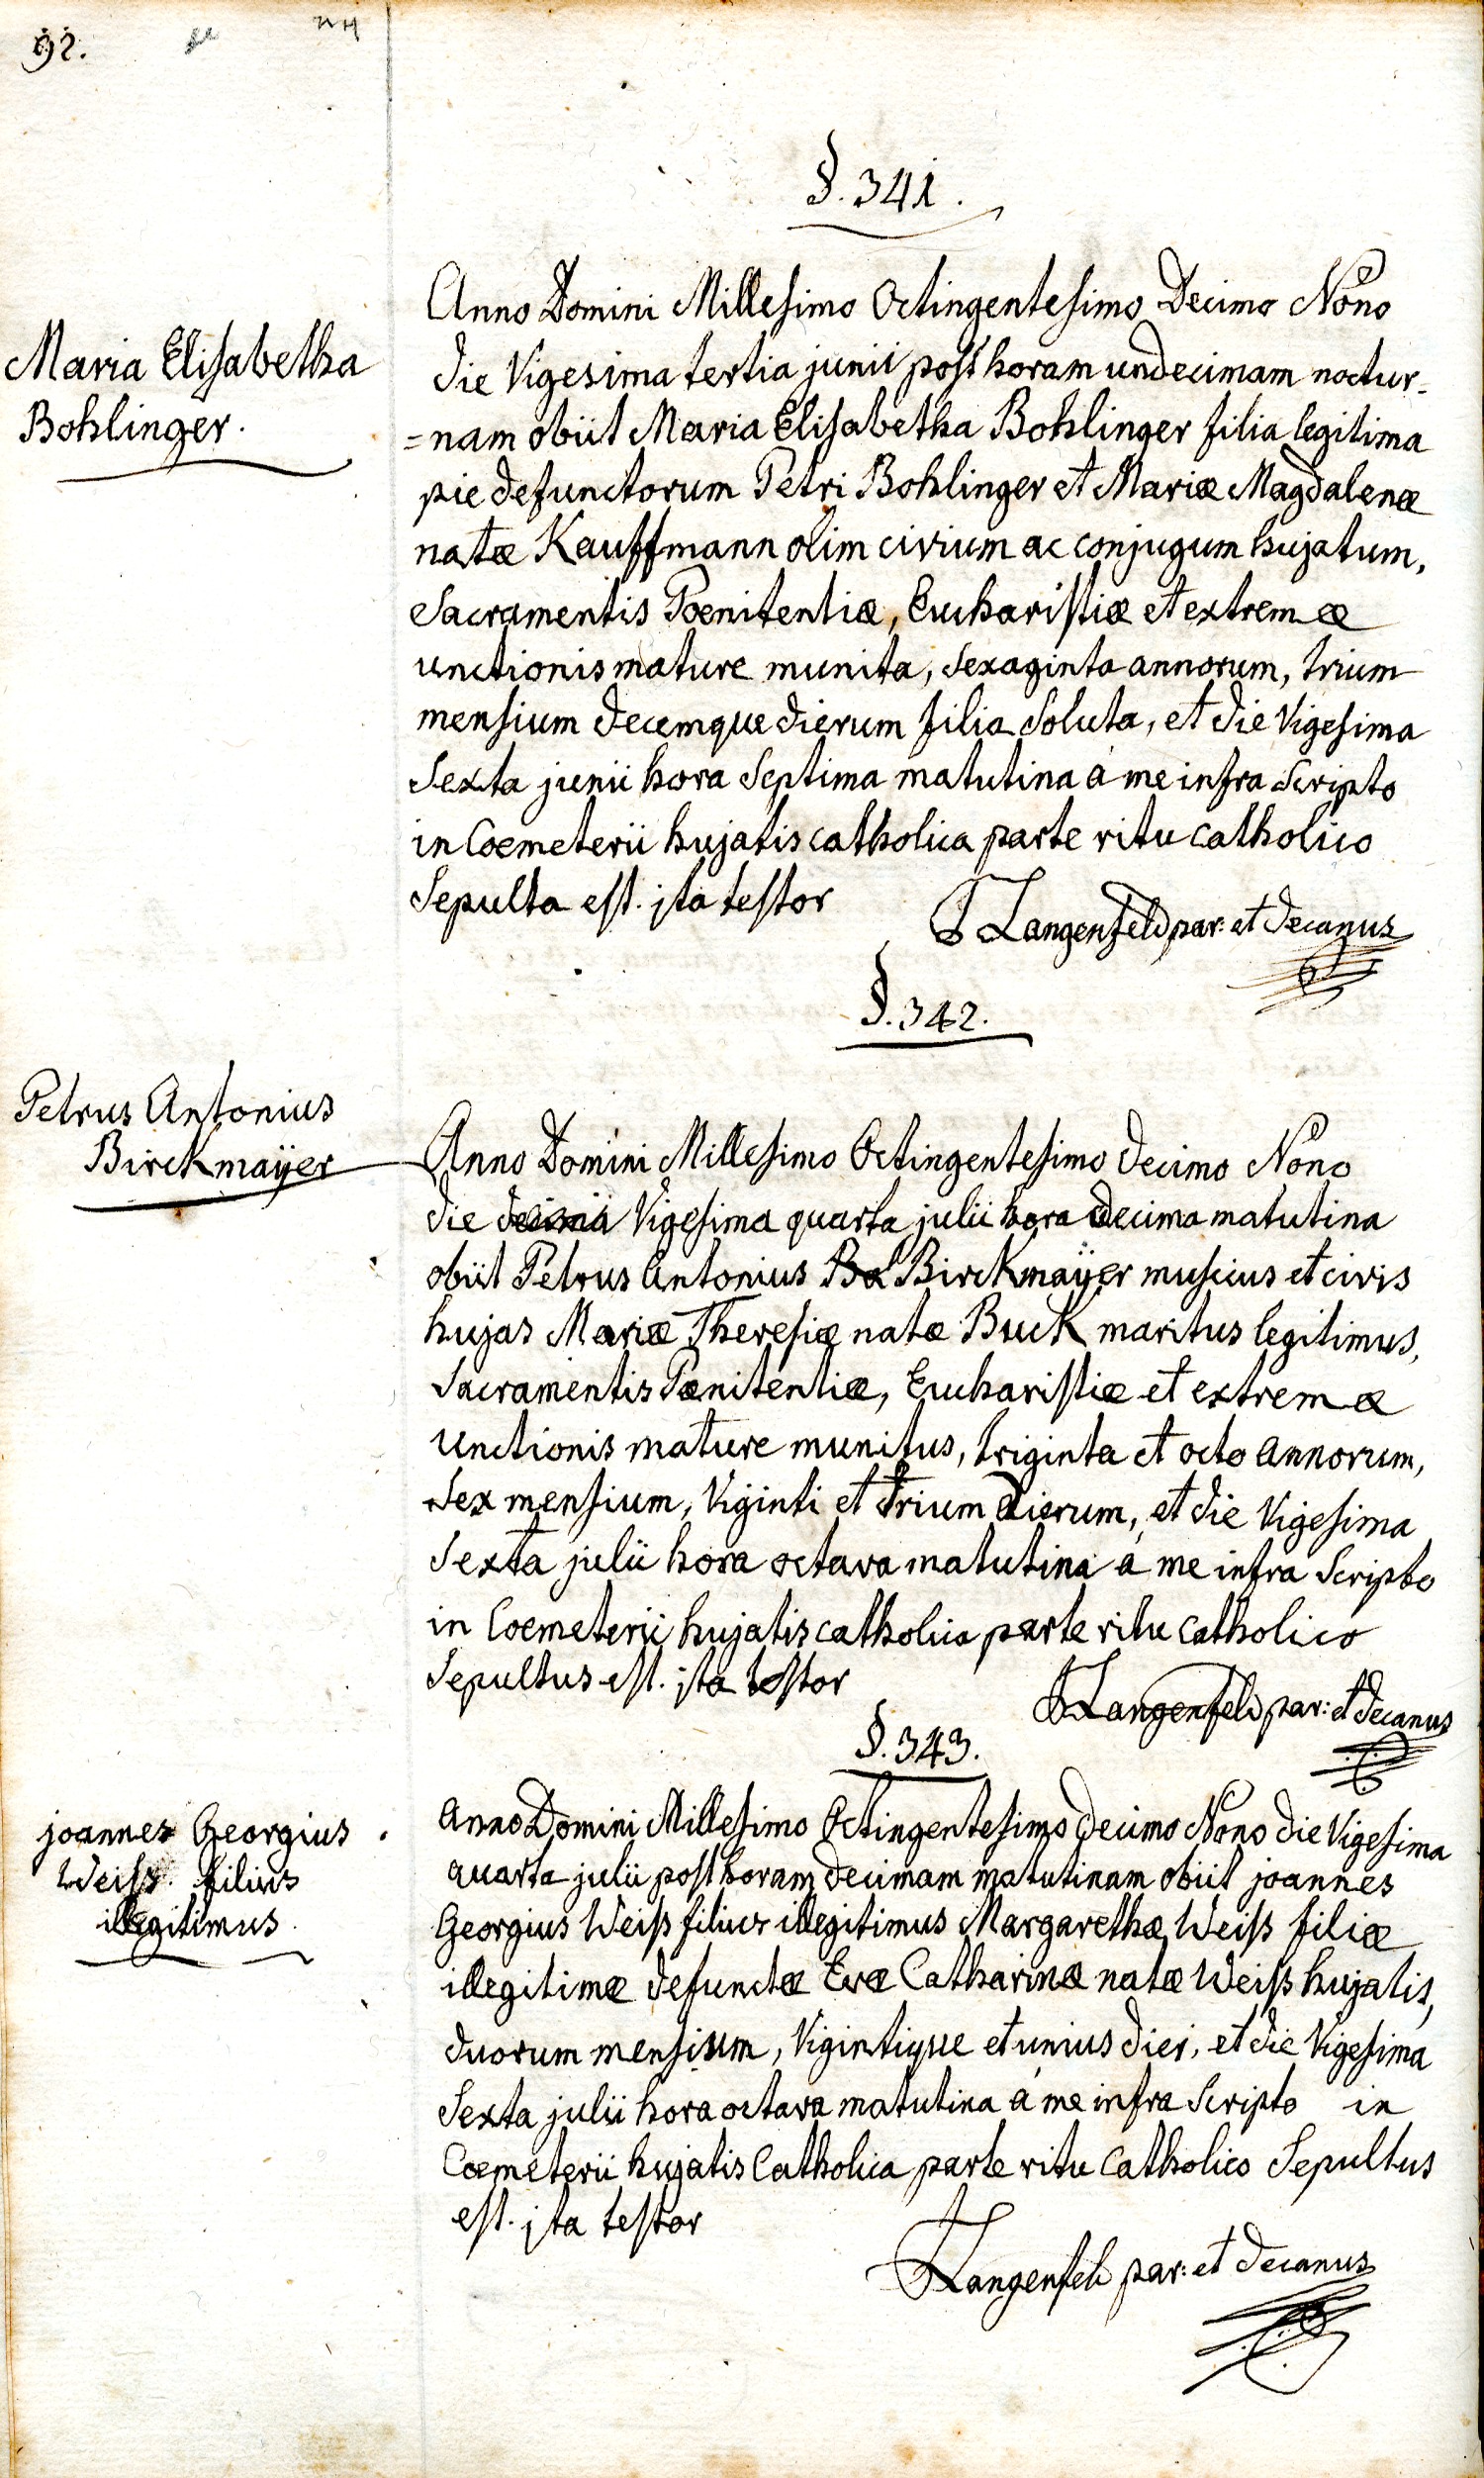 92.
§. 341.
Maria Elisabetha
Bohlinger.
Anno Domini Millesimo Octingentesimo Decimo Nono
die Vigesima tertia junii post horam undecimam noctur=
=nam obiit Maria Elisabetha Bohlinger filia legitima
pie defunctorum Petri Bohlinger et Mariæ Magdalenæ
natæ Kauffmann olim civium ac conjugum hujatum,
Sacramentis Poenitentiæ, Eucharistiæ et extremæ
unctionis mature munita, Sexaginta annorum, trium
mensium decemque dierum filia Soluta, et die Vigesima
Sexta junii hora Septima matutina á me infra Scripto
in Coemeterii hujatis catholica parte ritu catholico
Sepulta est. jta testor
Langenfeld par: et decanus
§. 342.
Petrus Antonius
Birckmaÿer
Anno Domini Millesimo Octingentesimo decimo Nono
die decima Vigesima quarta julii hora decima matutina
obiit Petrus Antonius Ba Birckmaÿer musicus et civis
hujas Mariæ Theresiæ natæ Buck maritus legitimus,
Sacramentis Pænitentiæ, Eucharistiæ et extremæ
Unctionis mature munitus, triginta et octo annorum,
Sex mensium, Viginti et trium dierum, et die Vigesima
Sexta julii hora octava matutina á me infra Scripto
in Coemeterii hujatis catholica parte ritu catholico
Sepultus est. jta testor
Langenfeld par: et decanus
§. 343.
joannes Georgius
Weiß filius
illegitimus
Anno Domini Millesimo Octingentesimo decimo Nono die Vigesima
quarta julii post horam decimam matutinam obiit joannes
Georgius Weiß filius illegitimus Margarethæ Weiß filiæ
illegitimæ defunctæ Evæ Catharinæ natæ Weiß hujatis,
duorum mensium, Vigintique et unius diei, et die Vigesima
Sexta julii hora octava matutina á me infra Scripto in
Coemeterii hujatis Catholica parte ritu Catholico Sepultus
est. jta testor
Langenfeld par: et decanus